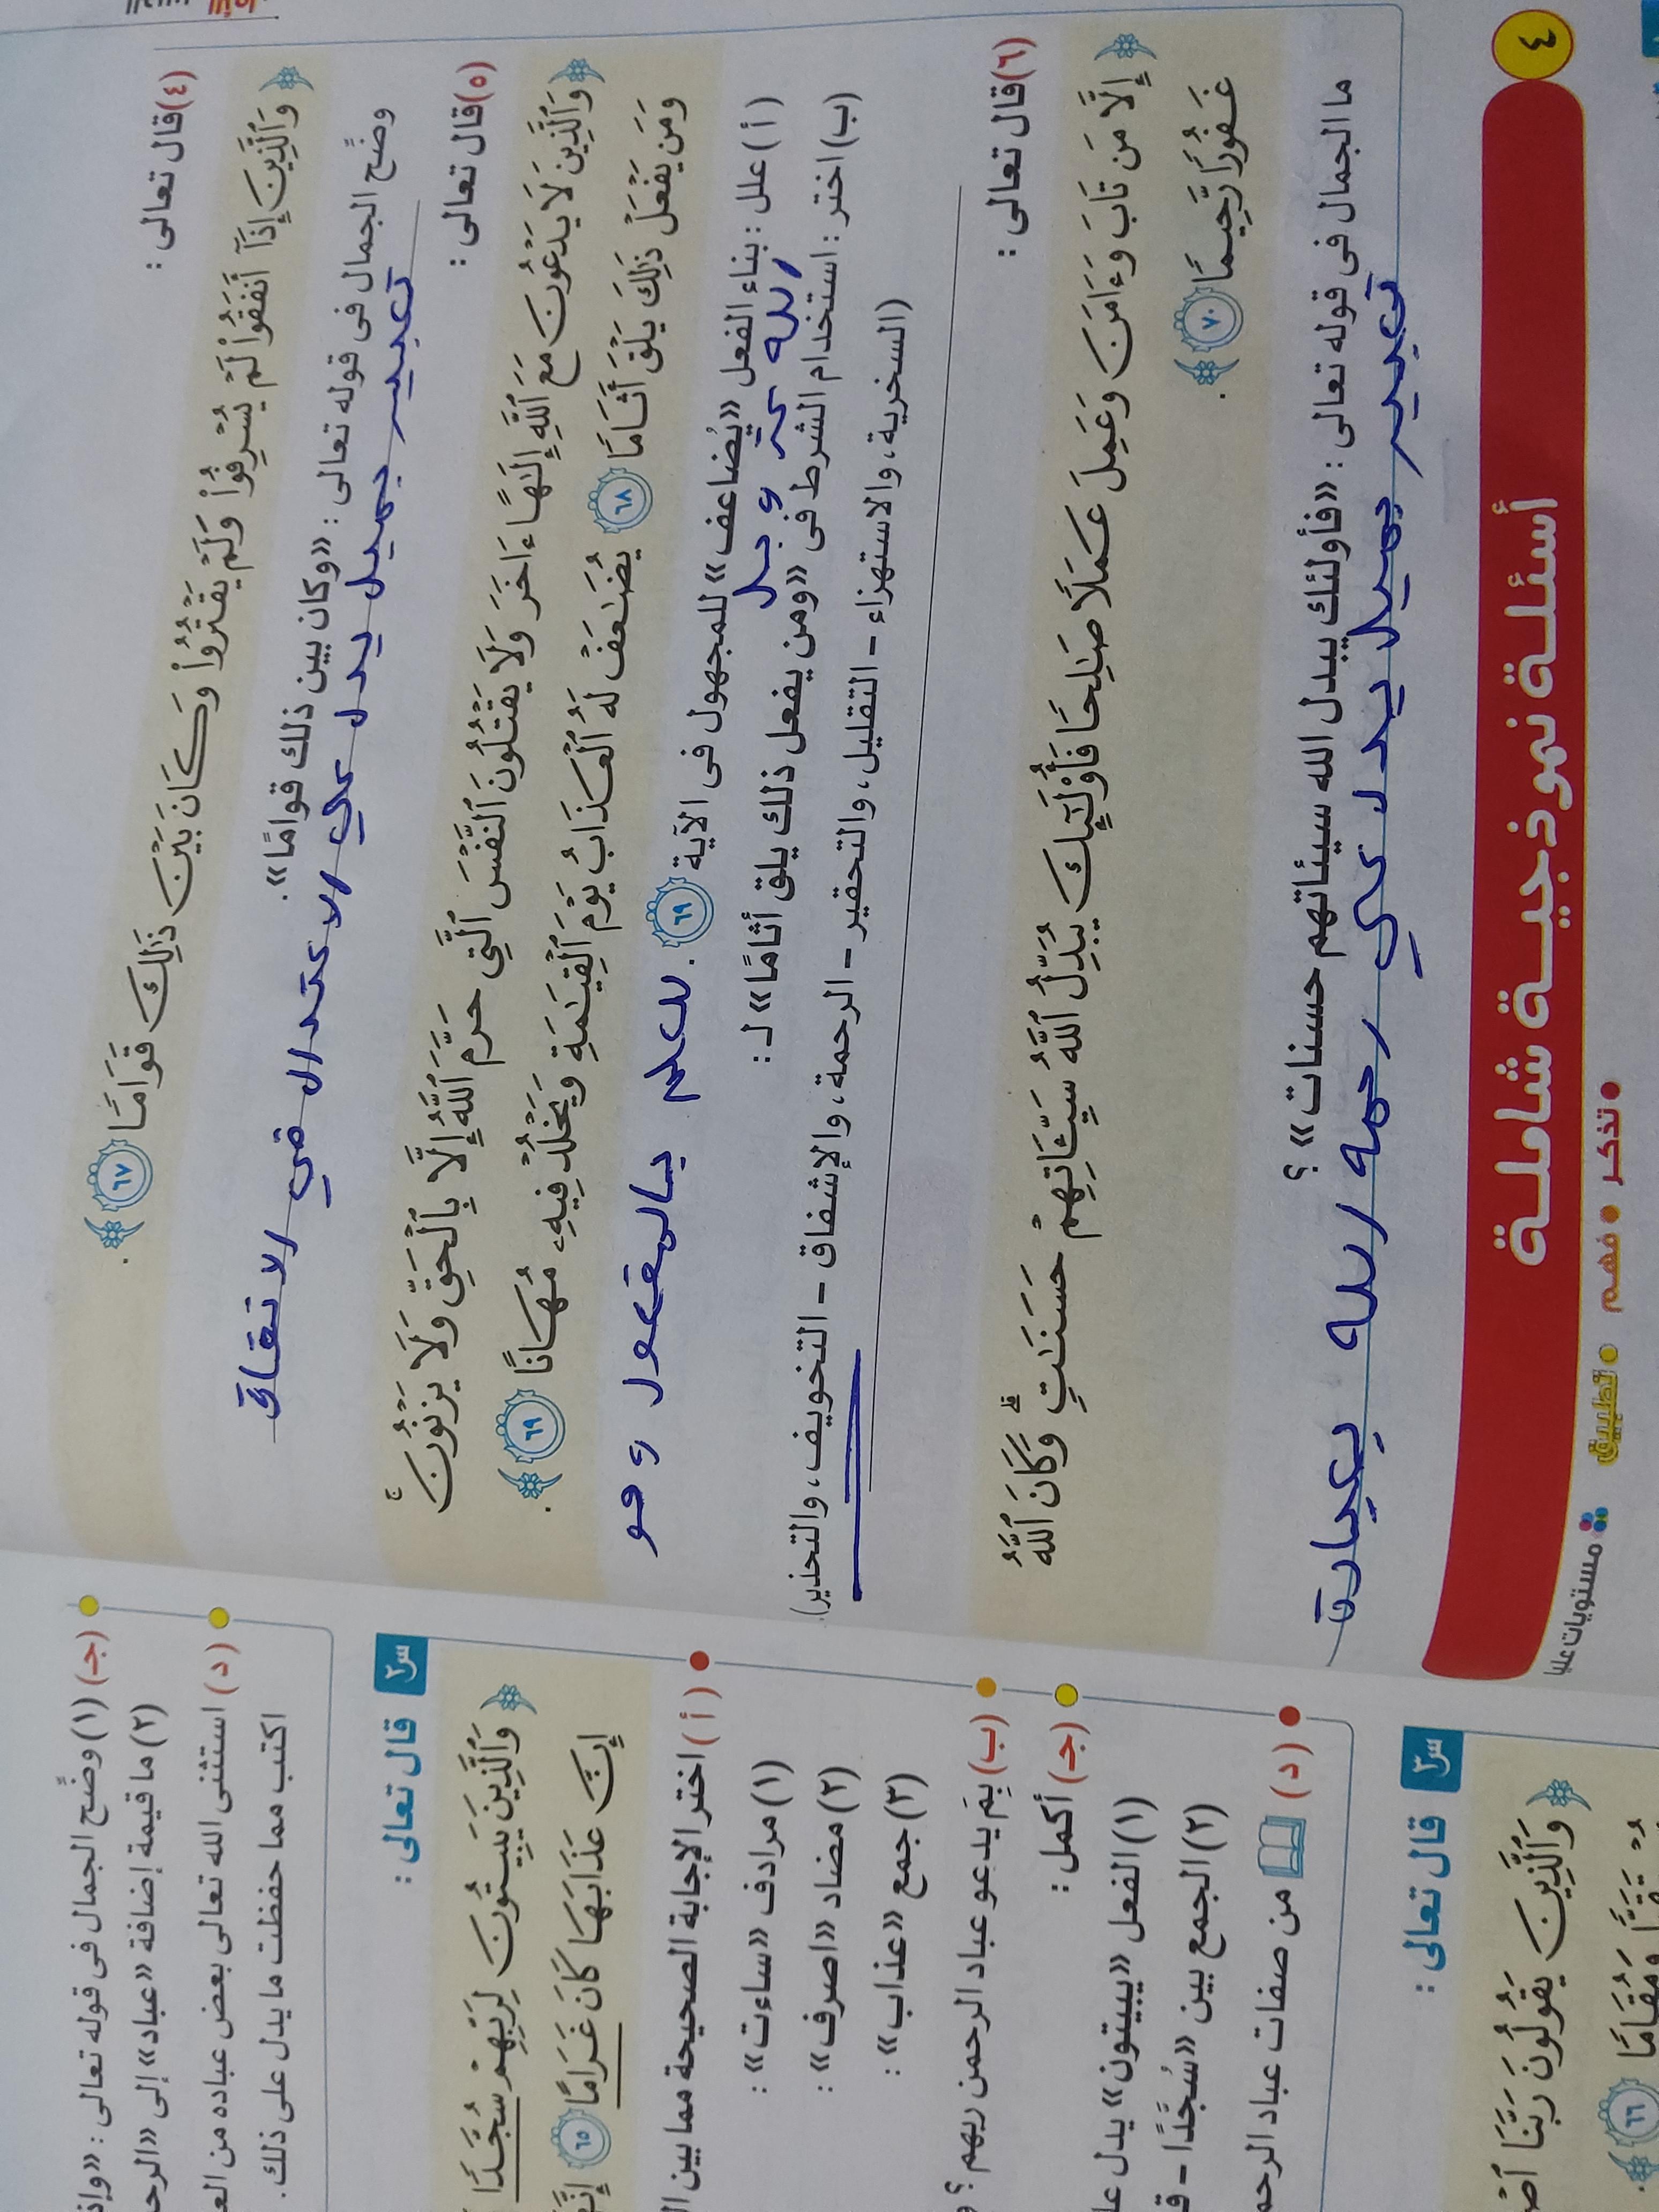 (٤) قال تعالى :
﴿ وَٱلَّذِينَ إِذَآ أَنفَقُوا۟ لَمْ يُسْرِفُوا۟ وَلَمْ يَقْتُرُوا۟ وَكَانَ بَيْنَ ذَٰلِكَ قَوَامًا ٦٧ ﴾ .
وضَّح الجمال فى قوله تعالى : «وكان بين ذلك قوامًا».
تعبير جميل يدل علي الاعتدال في الانفاق
(٥) قال تعالى :
﴿ وَٱلَّذِينَ لَا يَدْعُونَ مَعَ ٱللَّهِ إِلَٰهًا ءَاخَرَ وَلَا يَقْتُلُونَ ٱلنَّفْسَ ٱلَّتِى حَرَّمَ ٱللَّهُ إِلَّا بِٱلْحَقِّ وَلَا يَزْنُونَ ۚ
وَمَن يَفْعَلْ ذَٰلِكَ يَلْقَ أَثَامًا ٦٨ يُضَٰعَفْ لَهُ ٱلْعَذَابُ يَوْمَ ٱلْقِيَٰمَةِ وَيَخْلُدْ فِيهِۦ مُهَانًا ٦٩ ﴾ .
(أ) علل : بناء الفعل «يُضاعف» للمجهول فى الآية ٦٩ . للعلم بالفعول وهو
الله عز و جل
(ب) اختر : استخدام الشرط فى «ومن يفعل ذلك يلق أثامًا» لـ :
(السخرية، والاستهزاء - التقليل، والتحقير - الرحمة، والإشفاق - التخويف، والتحذير).
(٦) قال تعالى :
﴿ إِلَّا مَن تَابَ وَءَامَنَ وَعَمِلَ عَمَلًا صَٰلِحًا فَأُو۟لَٰٓئِكَ يُبَدِّلُ ٱللَّهُ سَيِّـَٔاتِهِمْ حَسَنَٰتٍ ۗ وَكَانَ ٱللَّهُ
غَفُورًا رَّحِيمًا ٧٠ ﴾ .
ما الجمال فى قوله تعالى : «فأولئك يبدل الله سيئاتهم حسنات» ؟
تعبير جميل يدل علي رحمه الله بعباره
٤ أسئلة نموذجية شاملة
تذكر فهم تطبيق مستويات عليا
(جـ) (١) وضَّح الجمال فى قوله تعالى :
(٢) ما قيمة إضافة «عباد» إلى
(د) استثنى الله تعالى بعض عباده من
اكتب مما حفظت ما يدل على ذلك.
س٢ قال تعالى :
﴿ وَٱلَّذِينَ يَبِيتُونَ لِرَبِّهِمْ سُجَّدًا
إِنَّ عَذَابَهَا كَانَ غَرَامًا ٦٥
(أ) اختر الإجابة الصحيحة مما بين
(١) مرادف «ساءت» :
(٢) مضاد «اصرف» :
(٣) جمع «عذاب» :
(ب) بِمَ يدعو عباد الرحمن ربهم ؟
(جـ) أكمل :
(١) الفعل «يبيتون» يدل
(٢) الجمع بين «سُجَّدًا -
(د) من صفات عباد
س٣ قال تعالى :
﴿ وَٱلَّذِينَ يَقُولُونَ رَبَّنَا
٦٦ ﴾ .